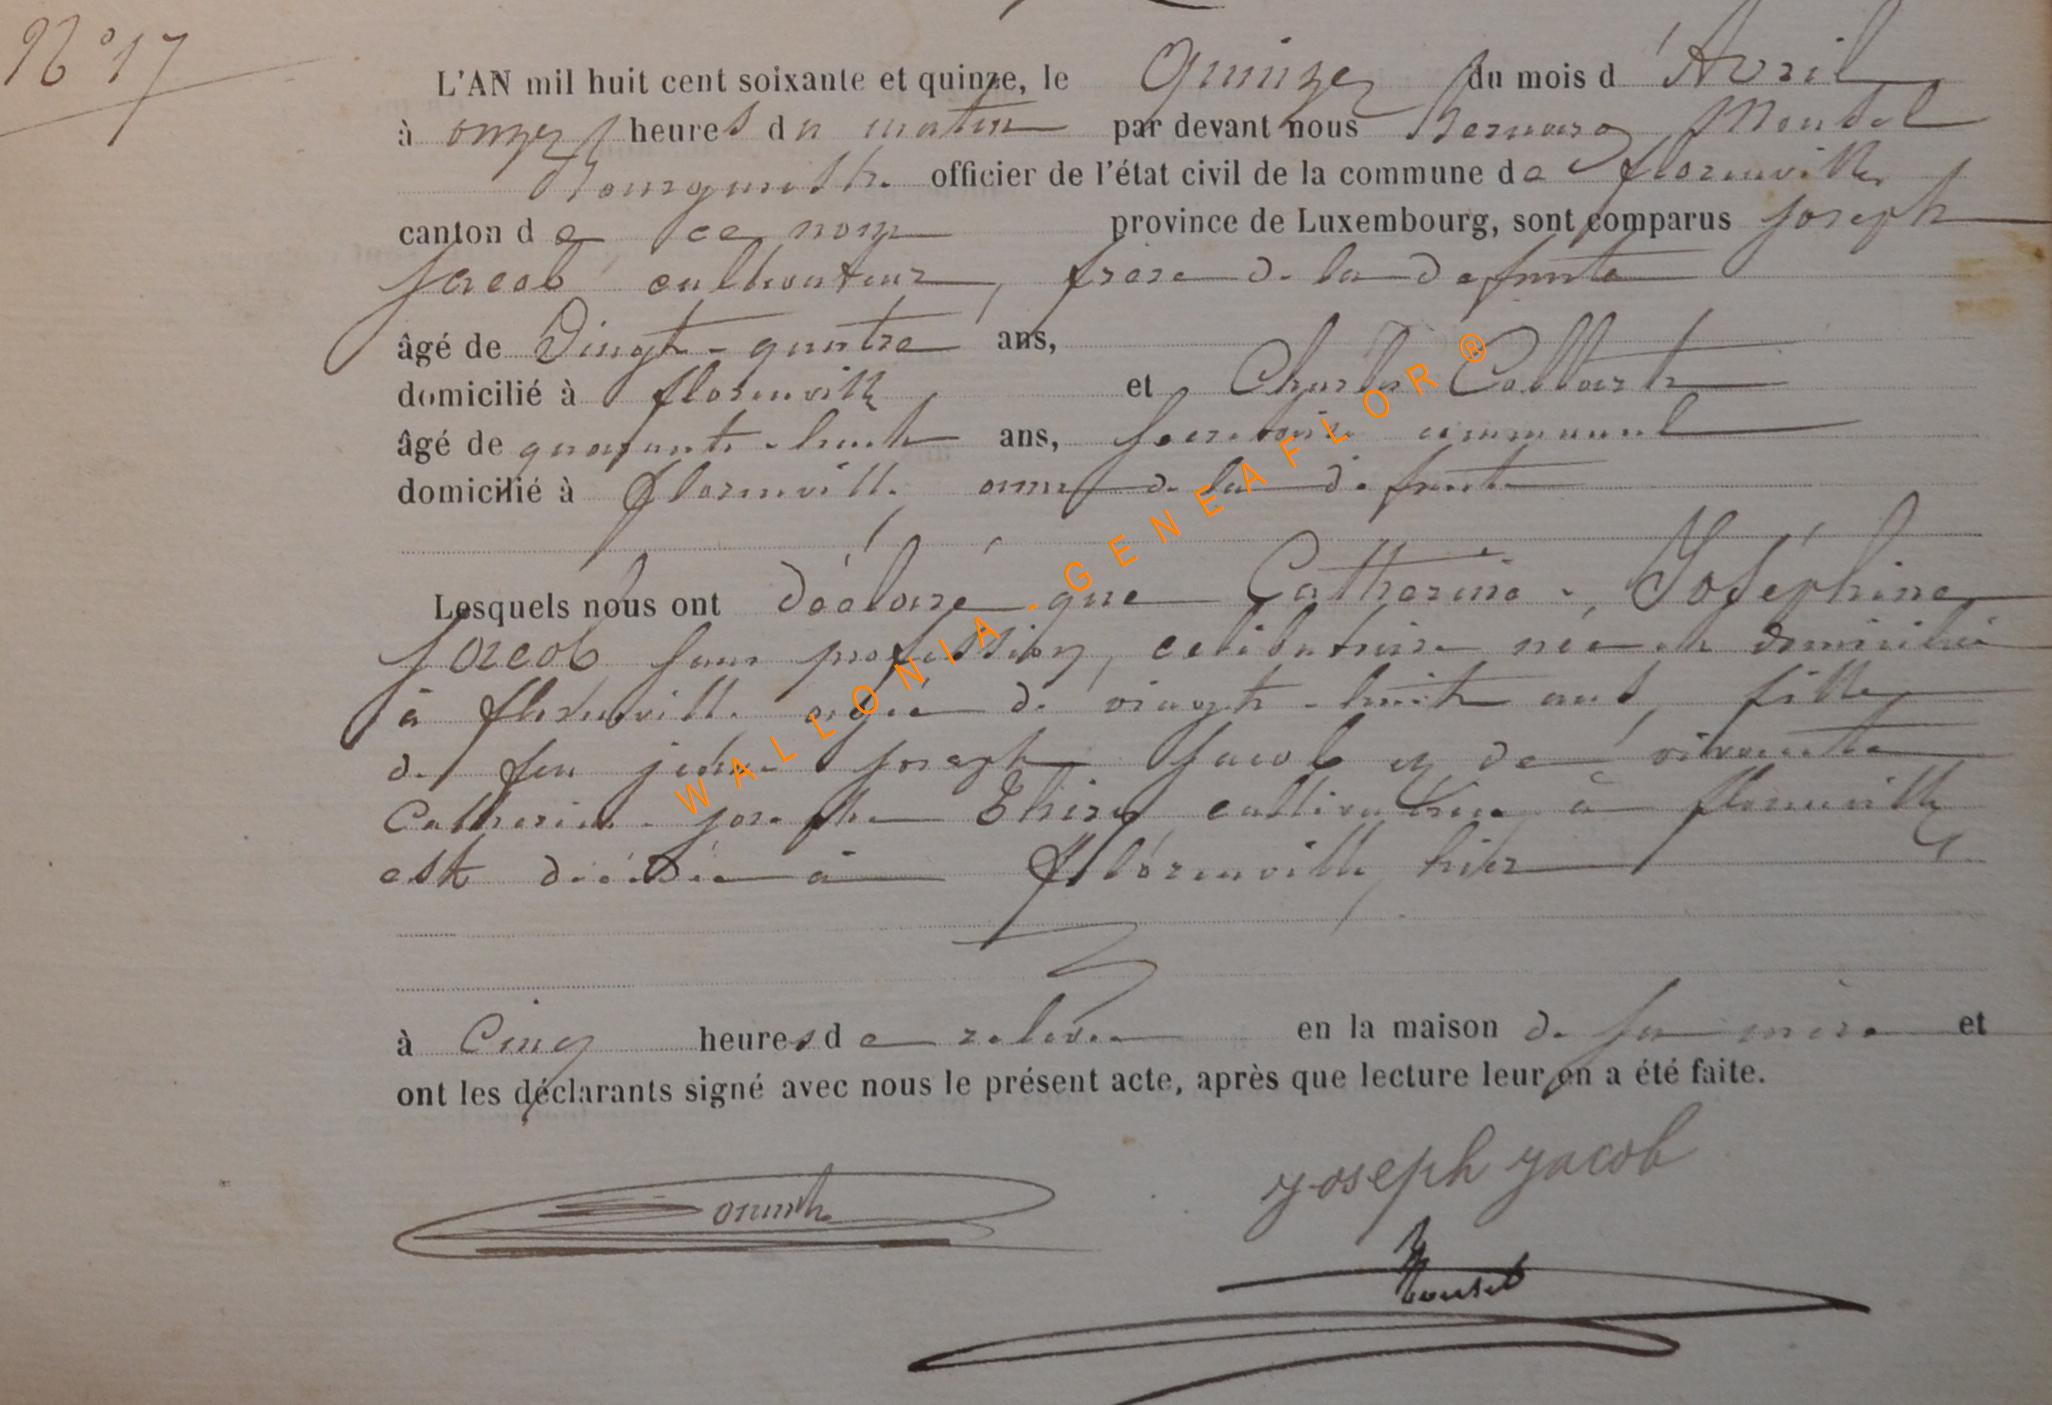 N° 17
L'AN mil huit cent soixante et quinze, le Quinze du mois d'Avril
à onze heures du matin par devant nous Bernard Moutel
Bourgmestre officier de l'état civil de la commune de florenville
canton de ce nom province de Luxembourg, sont comparus Joseph
Jacob cultivateur, frère de la défunte
âgé de Vingt-quatre ans,
domicilié à florenville et Charles Collart
âgé de quarante-huit ans, Secrétaire communal
domicilié à florenville ami de la défunte
Lesquels nous ont déclaré que Catherine-Joséphine
Jacob sans profession, célibataire née et domiciliée
à florenville agée de vingt-huit ans, fille
de feu Joseph Jacob et de vivante
Catherine-Josephe Thiry cultivatrice à florenville
est décédée à florenville, hier
à Cinq heures de relevée en la maison de sa mère et
ont les déclarants signé avec nous le présent acte, après que lecture leur en a été faite.
Joseph Jacob
WALLONIA.GENEAFLOR®